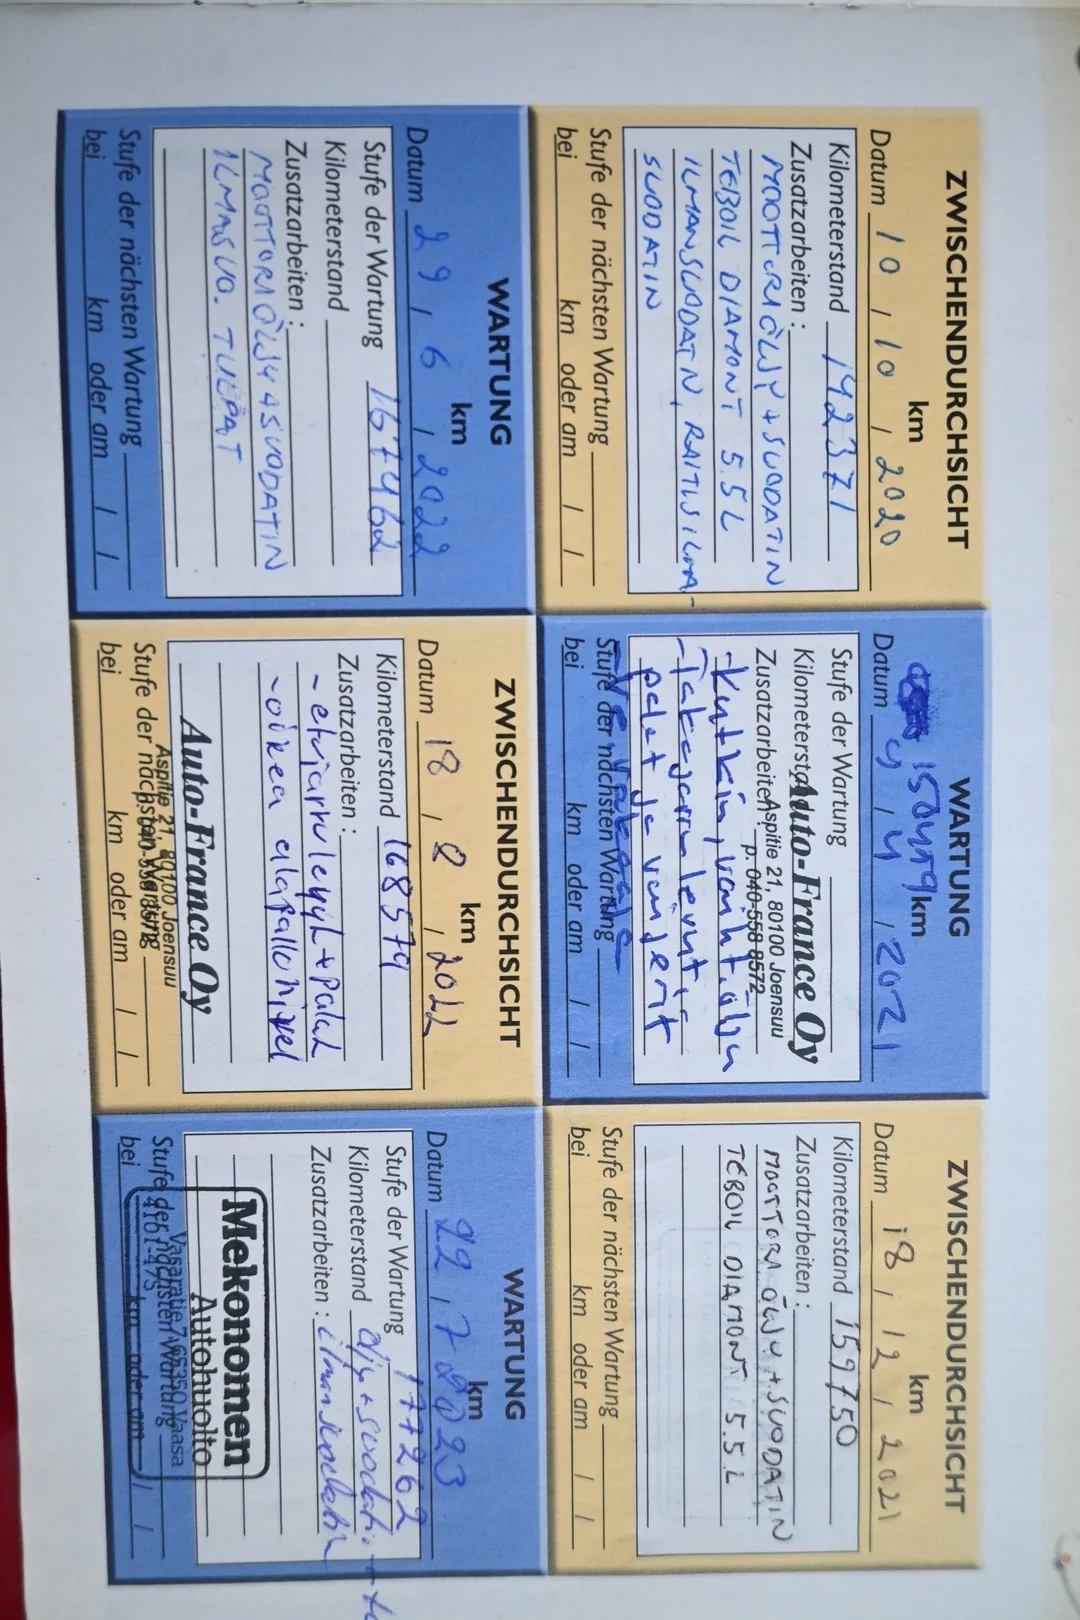 ZWISCHENDURCHSICHT
km
Datum 10 / 10 / 2020
Kilometerstand 142371
Zusatzarbeiten :
MOOTTORIÖLJY + SUODATIN
TEBOIL DIAMONT 5.5L
ILMANSUODATIN, RAITISILMA-
SUODATIN
Stufe der nächsten Wartung
bei km oder am / /
WARTUNG
150459 km
Datum 9 / 4 / 2021
Stufe der Wartung
Kilometerstand
Auto-France Oy
Zusatzarbeiten
Aspitie 21, 80100 Joensuu
p. 040-558 8572
-kytkin, vaiht.öljy
-Takajarrulevyt,
palat ja vaijerit
Stufe der nächsten Wartung
bei km oder am / /
ZWISCHENDURCHSICHT
km
Datum 18 / 12 / 2021
Kilometerstand 159750
Zusatzarbeiten :
MOOTTORI ÖLJY + SUODATIN
TEBOIL DIAMONT 5.5L
Stufe der nächsten Wartung
bei km oder am / /
WARTUNG
km
Datum 29 / 6 / 2022
Stufe der Wartung 167462
Kilometerstand
Zusatzarbeiten :
MOOTTORIÖLJY + SUODATIN
ILMASUO. TULPAT
Stufe der nächsten Wartung
bei km oder am / /
ZWISCHENDURCHSICHT
km
Datum 18 / 8 / 2022
Kilometerstand 168579
Zusatzarbeiten :
- etujarrulevyt + palat
- oikea alapallonivel
Auto-France Oy
Aspitie 21, 80100 Joensuu
Stufe der nächsten Wartung
bei km oder am / /
WARTUNG
km
Datum 22 / 7 2023
Stufe der Wartung 177262
Kilometerstand öljy + suodatin +
Zusatzarbeiten : ilmansuodatin
Mekonomen
Autohuolto
Vasaratie 7, 65350 Vaasa
Stufe der nächsten Wartung
bei km oder am / /